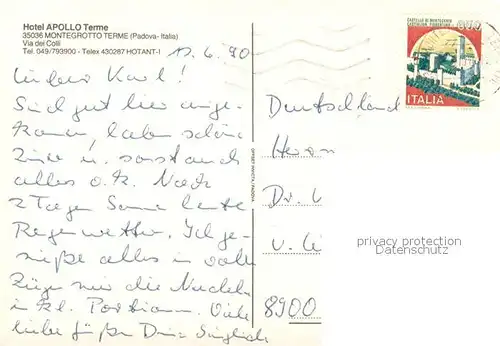 Hotel APOLLO Terme
35036 MONTEGROTTO TERME (Padova-Italia)
Via dei Colli
Tel. 049/793900 - Telex 430287 HOTANT-I
6. 90
Lieber Karl!
Sind gut hier ange-
kommen, haben schöne
Zimmer u. sonst auch
alles o.k. Nach
2 Tagen Sonne heute
Regenwetter. Ich ge-
nieße alles in vollen
Zügen nur die Nudeln
in kl. Portionen. Viele
liebe Grüße Deine
CASTELLO DI MONTECCHIO
CASTIGLION FIORENTINO
ITALIA
Deutschland
Herrn
Dr.
8900
privacy protection
AnsichtskartenKontor.de